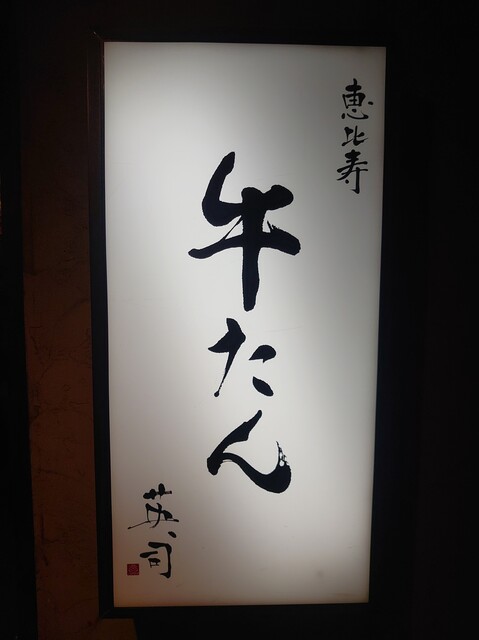 恵比寿
牛たん
英司